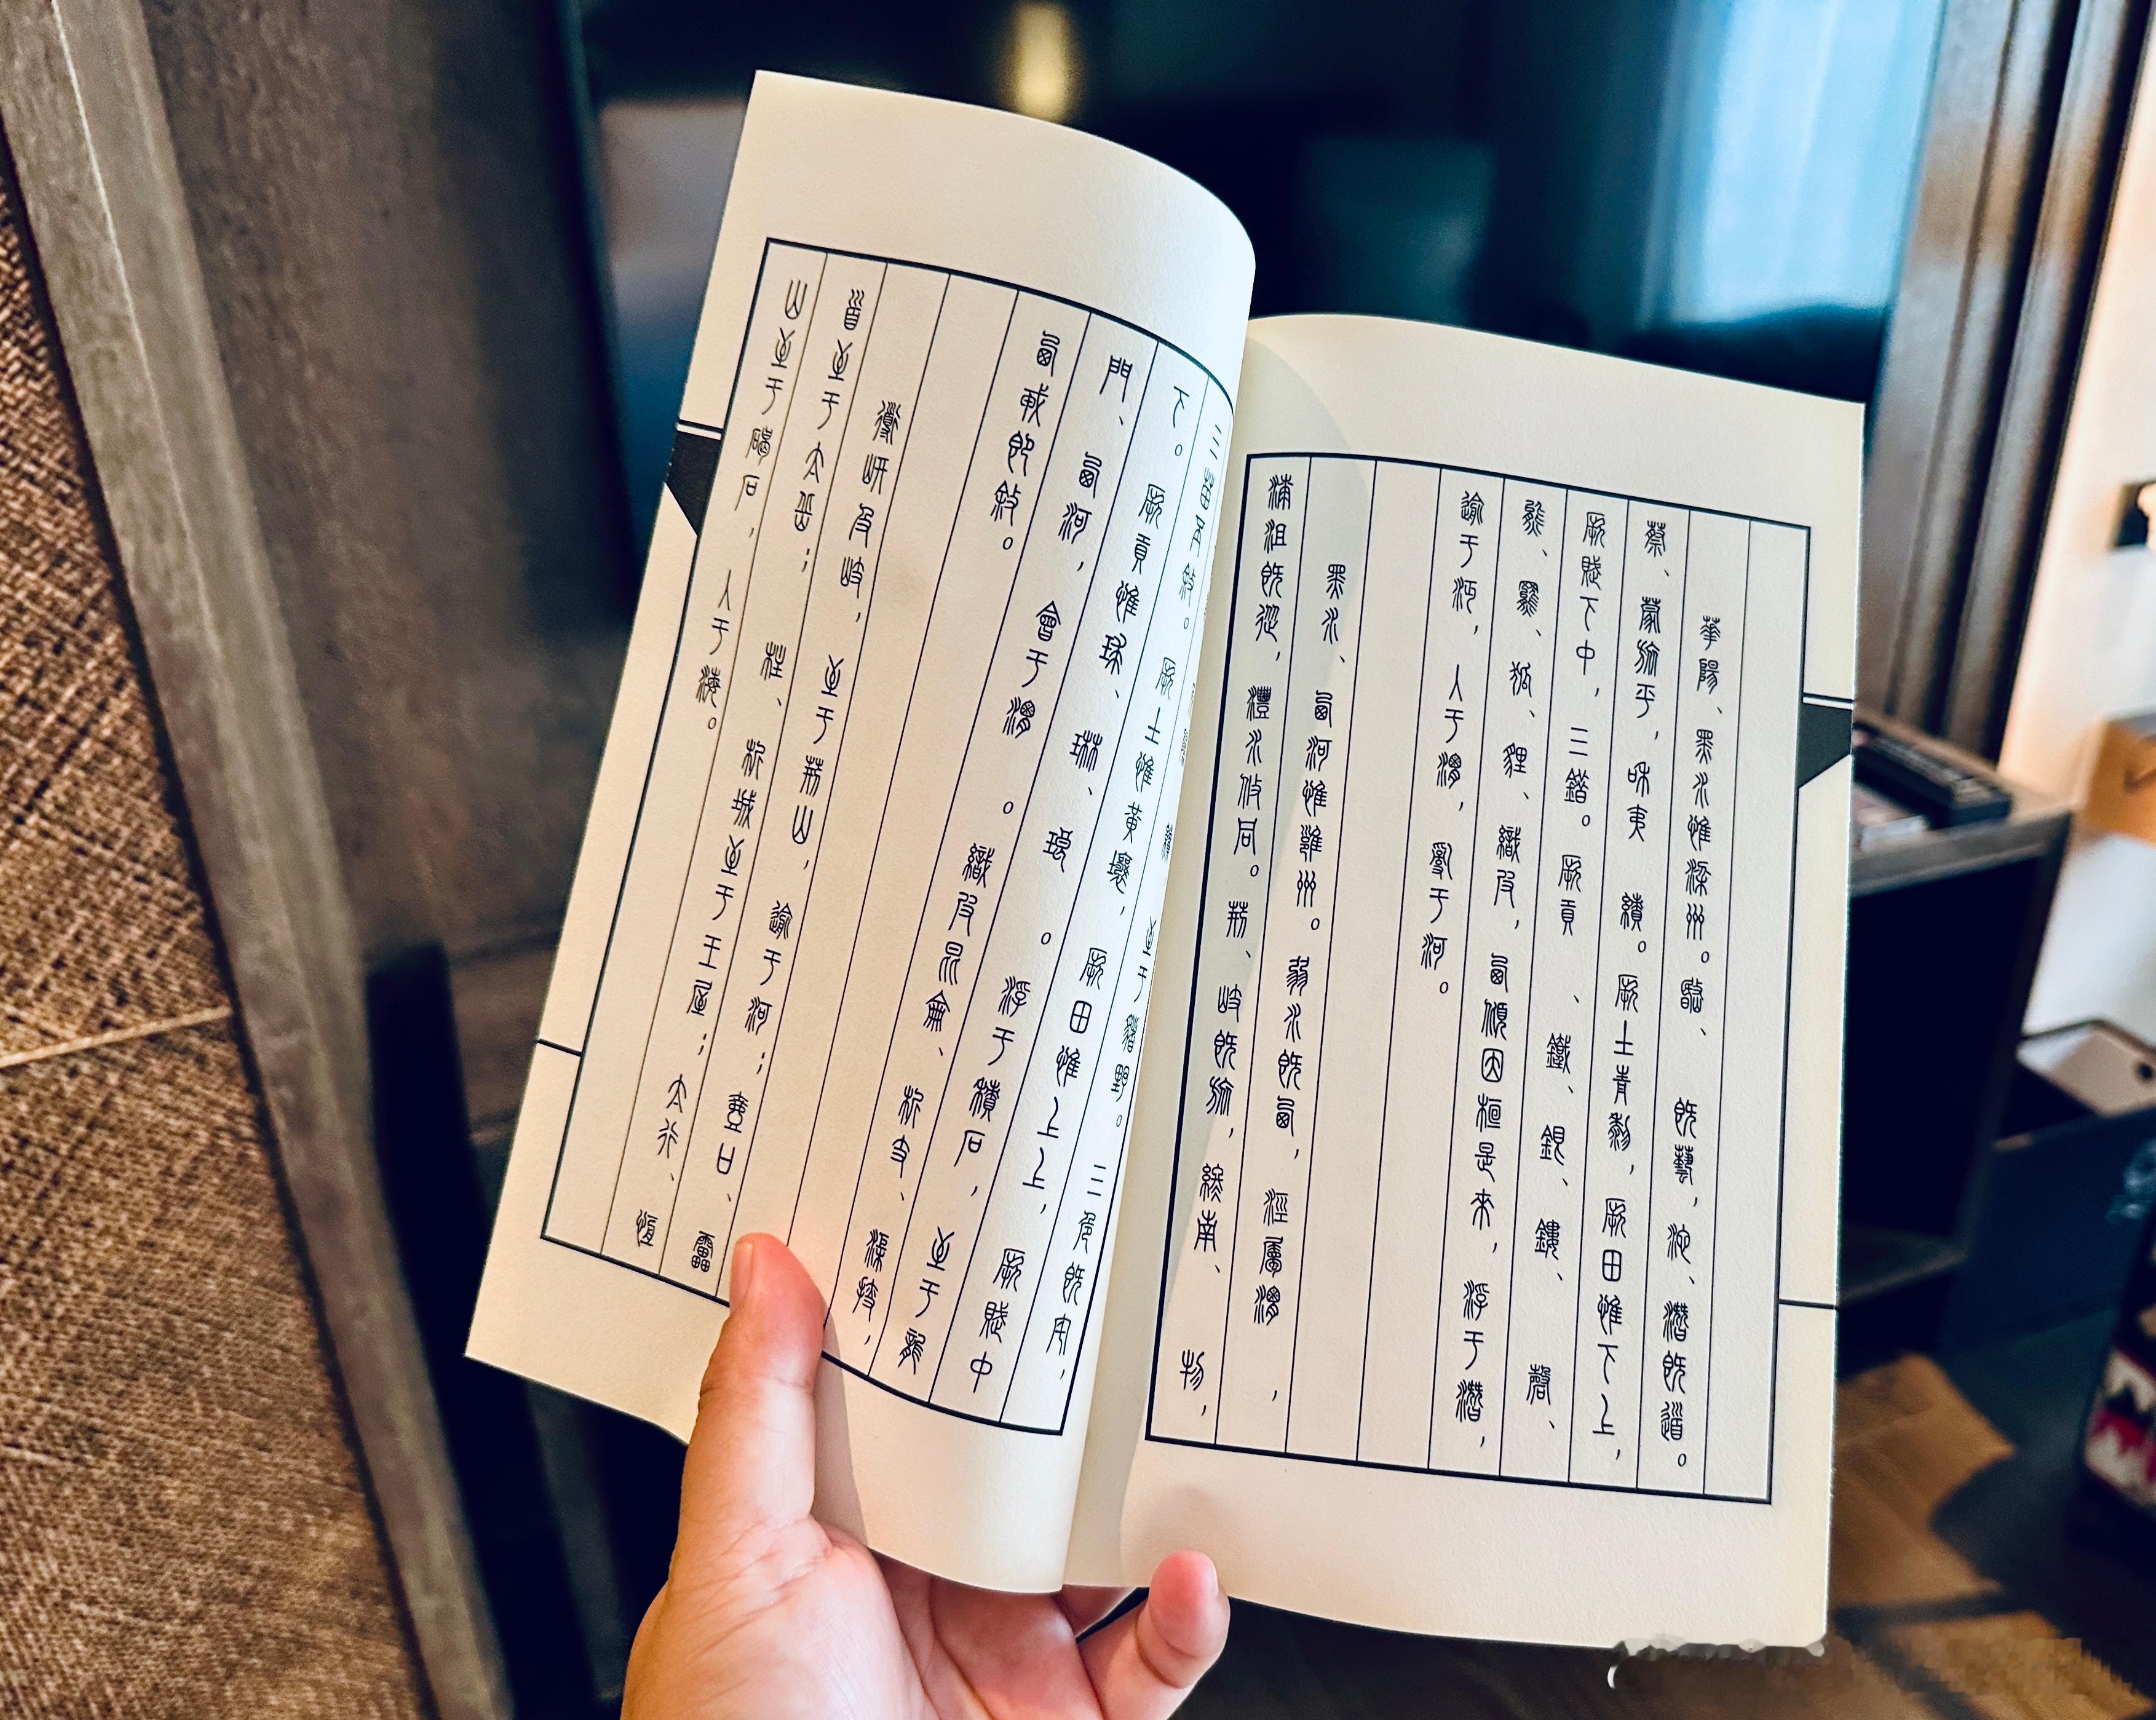 華陽、黑水惟梁州。岷、 既藝，沱、潛既道。
蔡、蒙旅平，和夷 績。厥土青黎，厥田惟下上，
厥賦下中，三錯。厥貢 、鐵、銀、鏤、 磬、
熊、羆、狐、貍、織皮，西傾因桓是來，浮于潛，
逾于沔，入于渭，亂于河。
黑水、西河惟雍州。弱水既西，涇屬渭 ，
漆沮既從，灃水攸同。荊、岐既旅，終南、 物，
至于豬野。三危既宅，
三苗丕敘。厥土惟黃壤，厥田惟上上，厥賦中
下。厥貢惟球、琳、琅 。浮于積石，至于龍
門、西河，會于渭 。織皮昆侖、析支、渠搜，
西戎即敘。
導岍及岐，至于荊山，逾于河；壺口、雷
首至于太岳； 柱、析城至于王屋；太行、恆
山至于碣石，入于海。